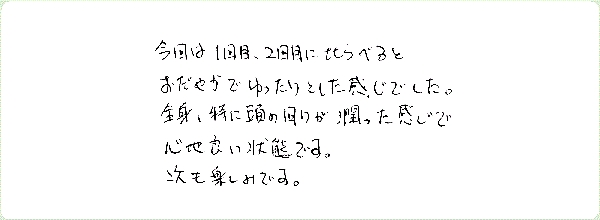 今回は1回目、2回目に比らべると
おだやかでゆったりとした感じでした。
全身、特に頭の回りが潤った感じで
心地良い状態です。
次も楽しみです。